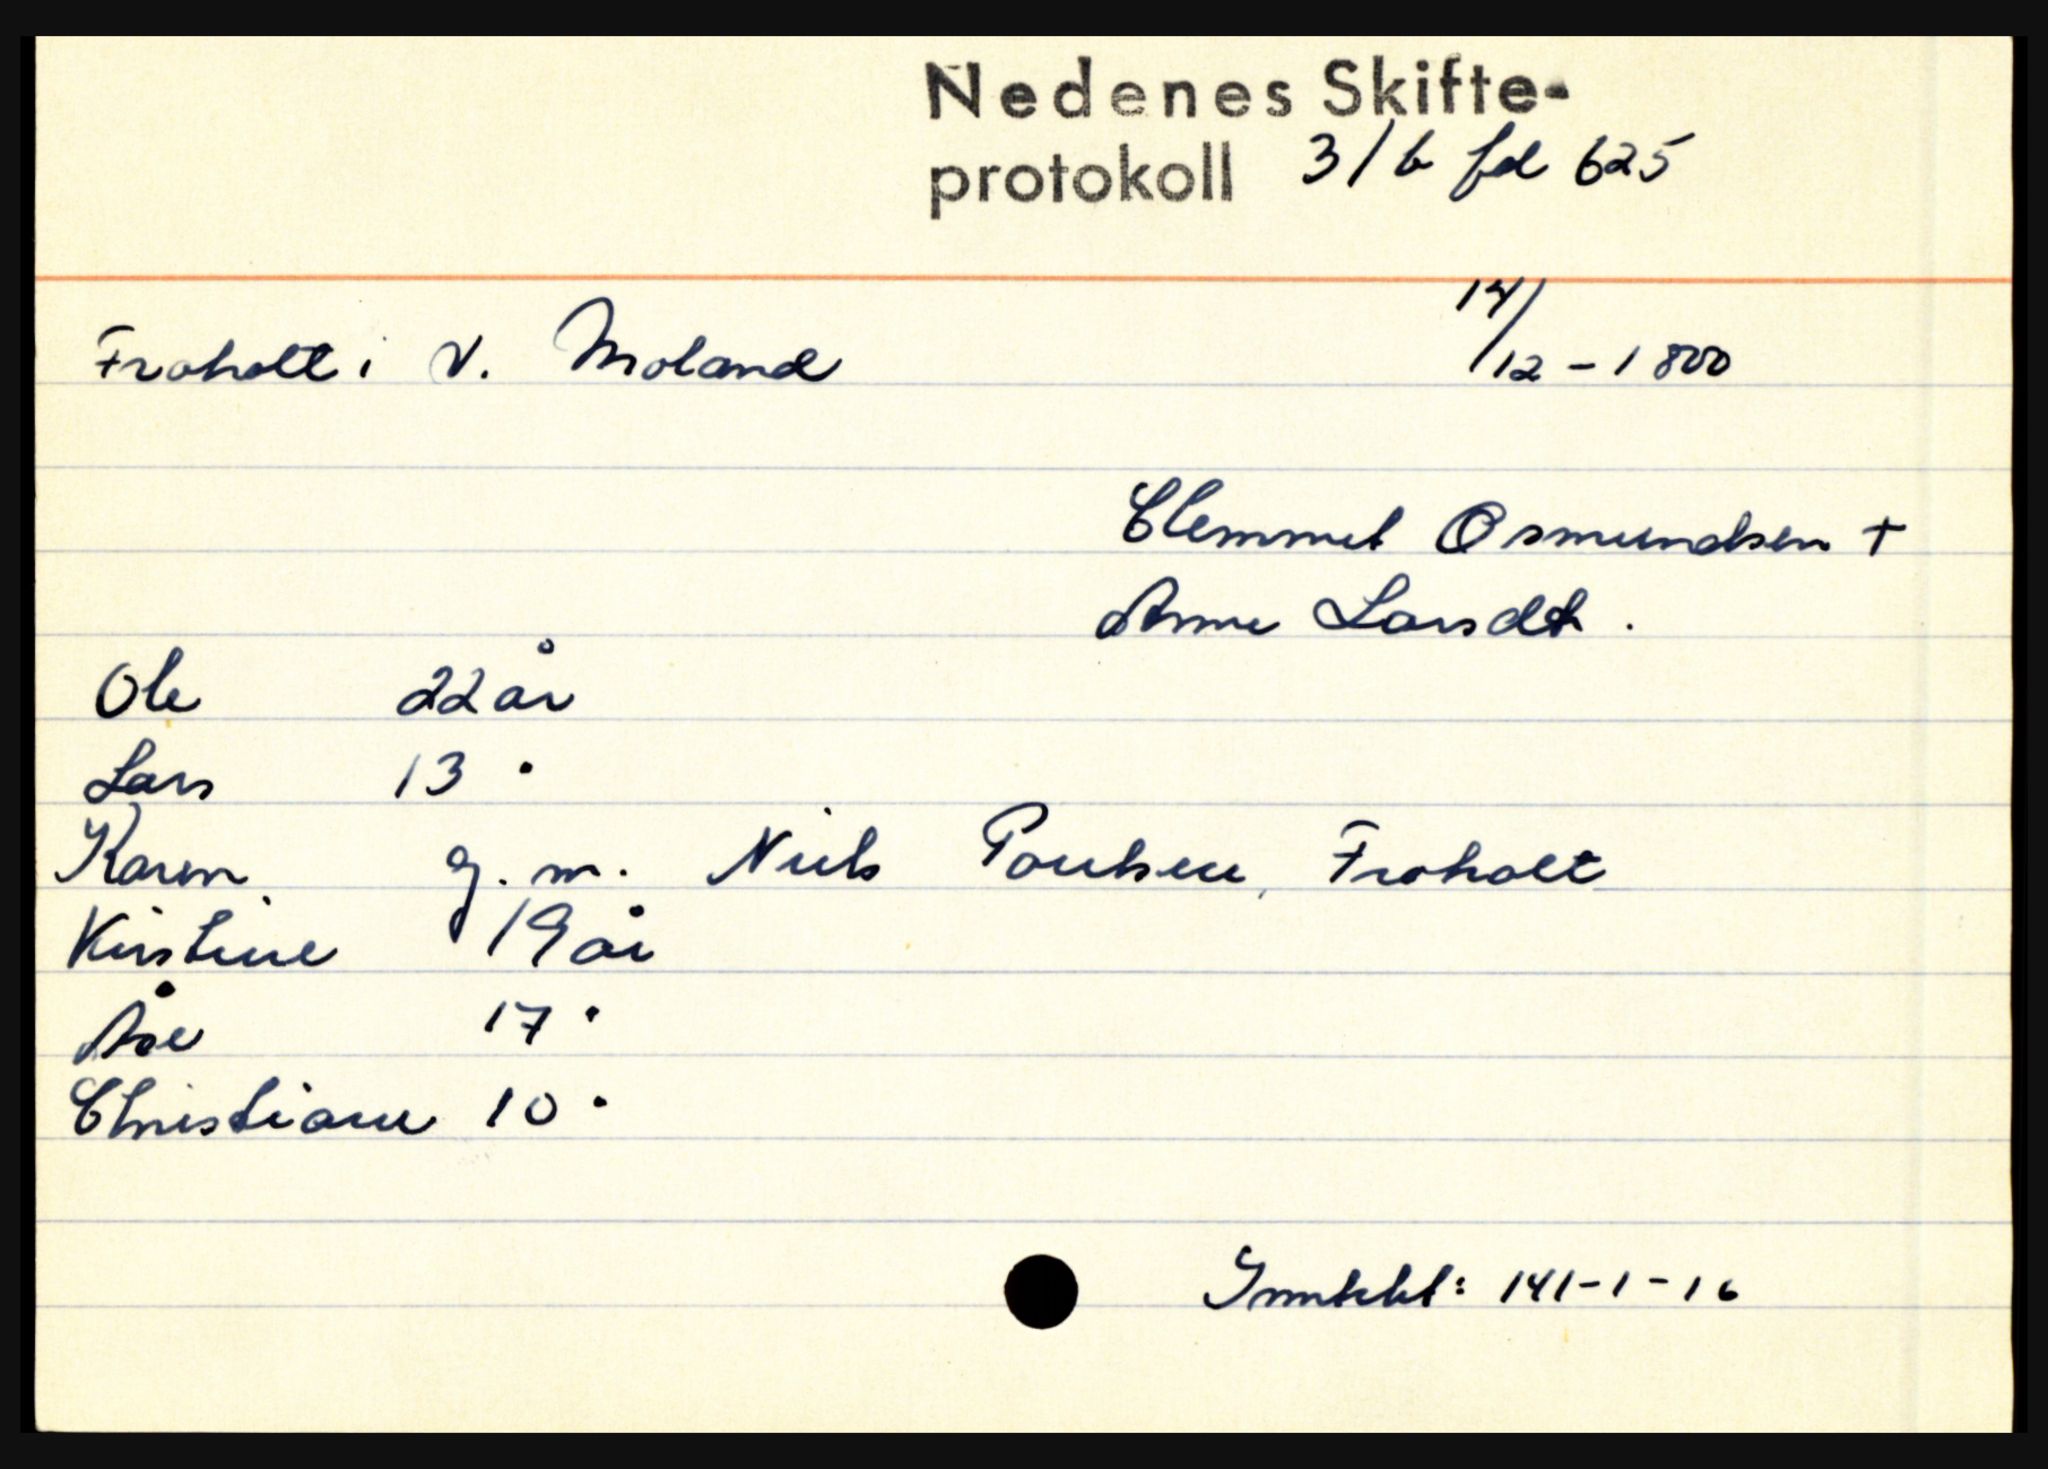 Nedenes Skifte-
protokoll 3/b fol 625
Froholt i V. Moland 14/12 - 1800
Clemmet Osmundsen +
Anne Larsdt.
Ole 22 år
Lars 13 "
Karen g. m. Niels Poulsen, Froholt
Kirstine 19 år
Åse 17 "
Christiane 10 "
Inntekt: 141-1-16